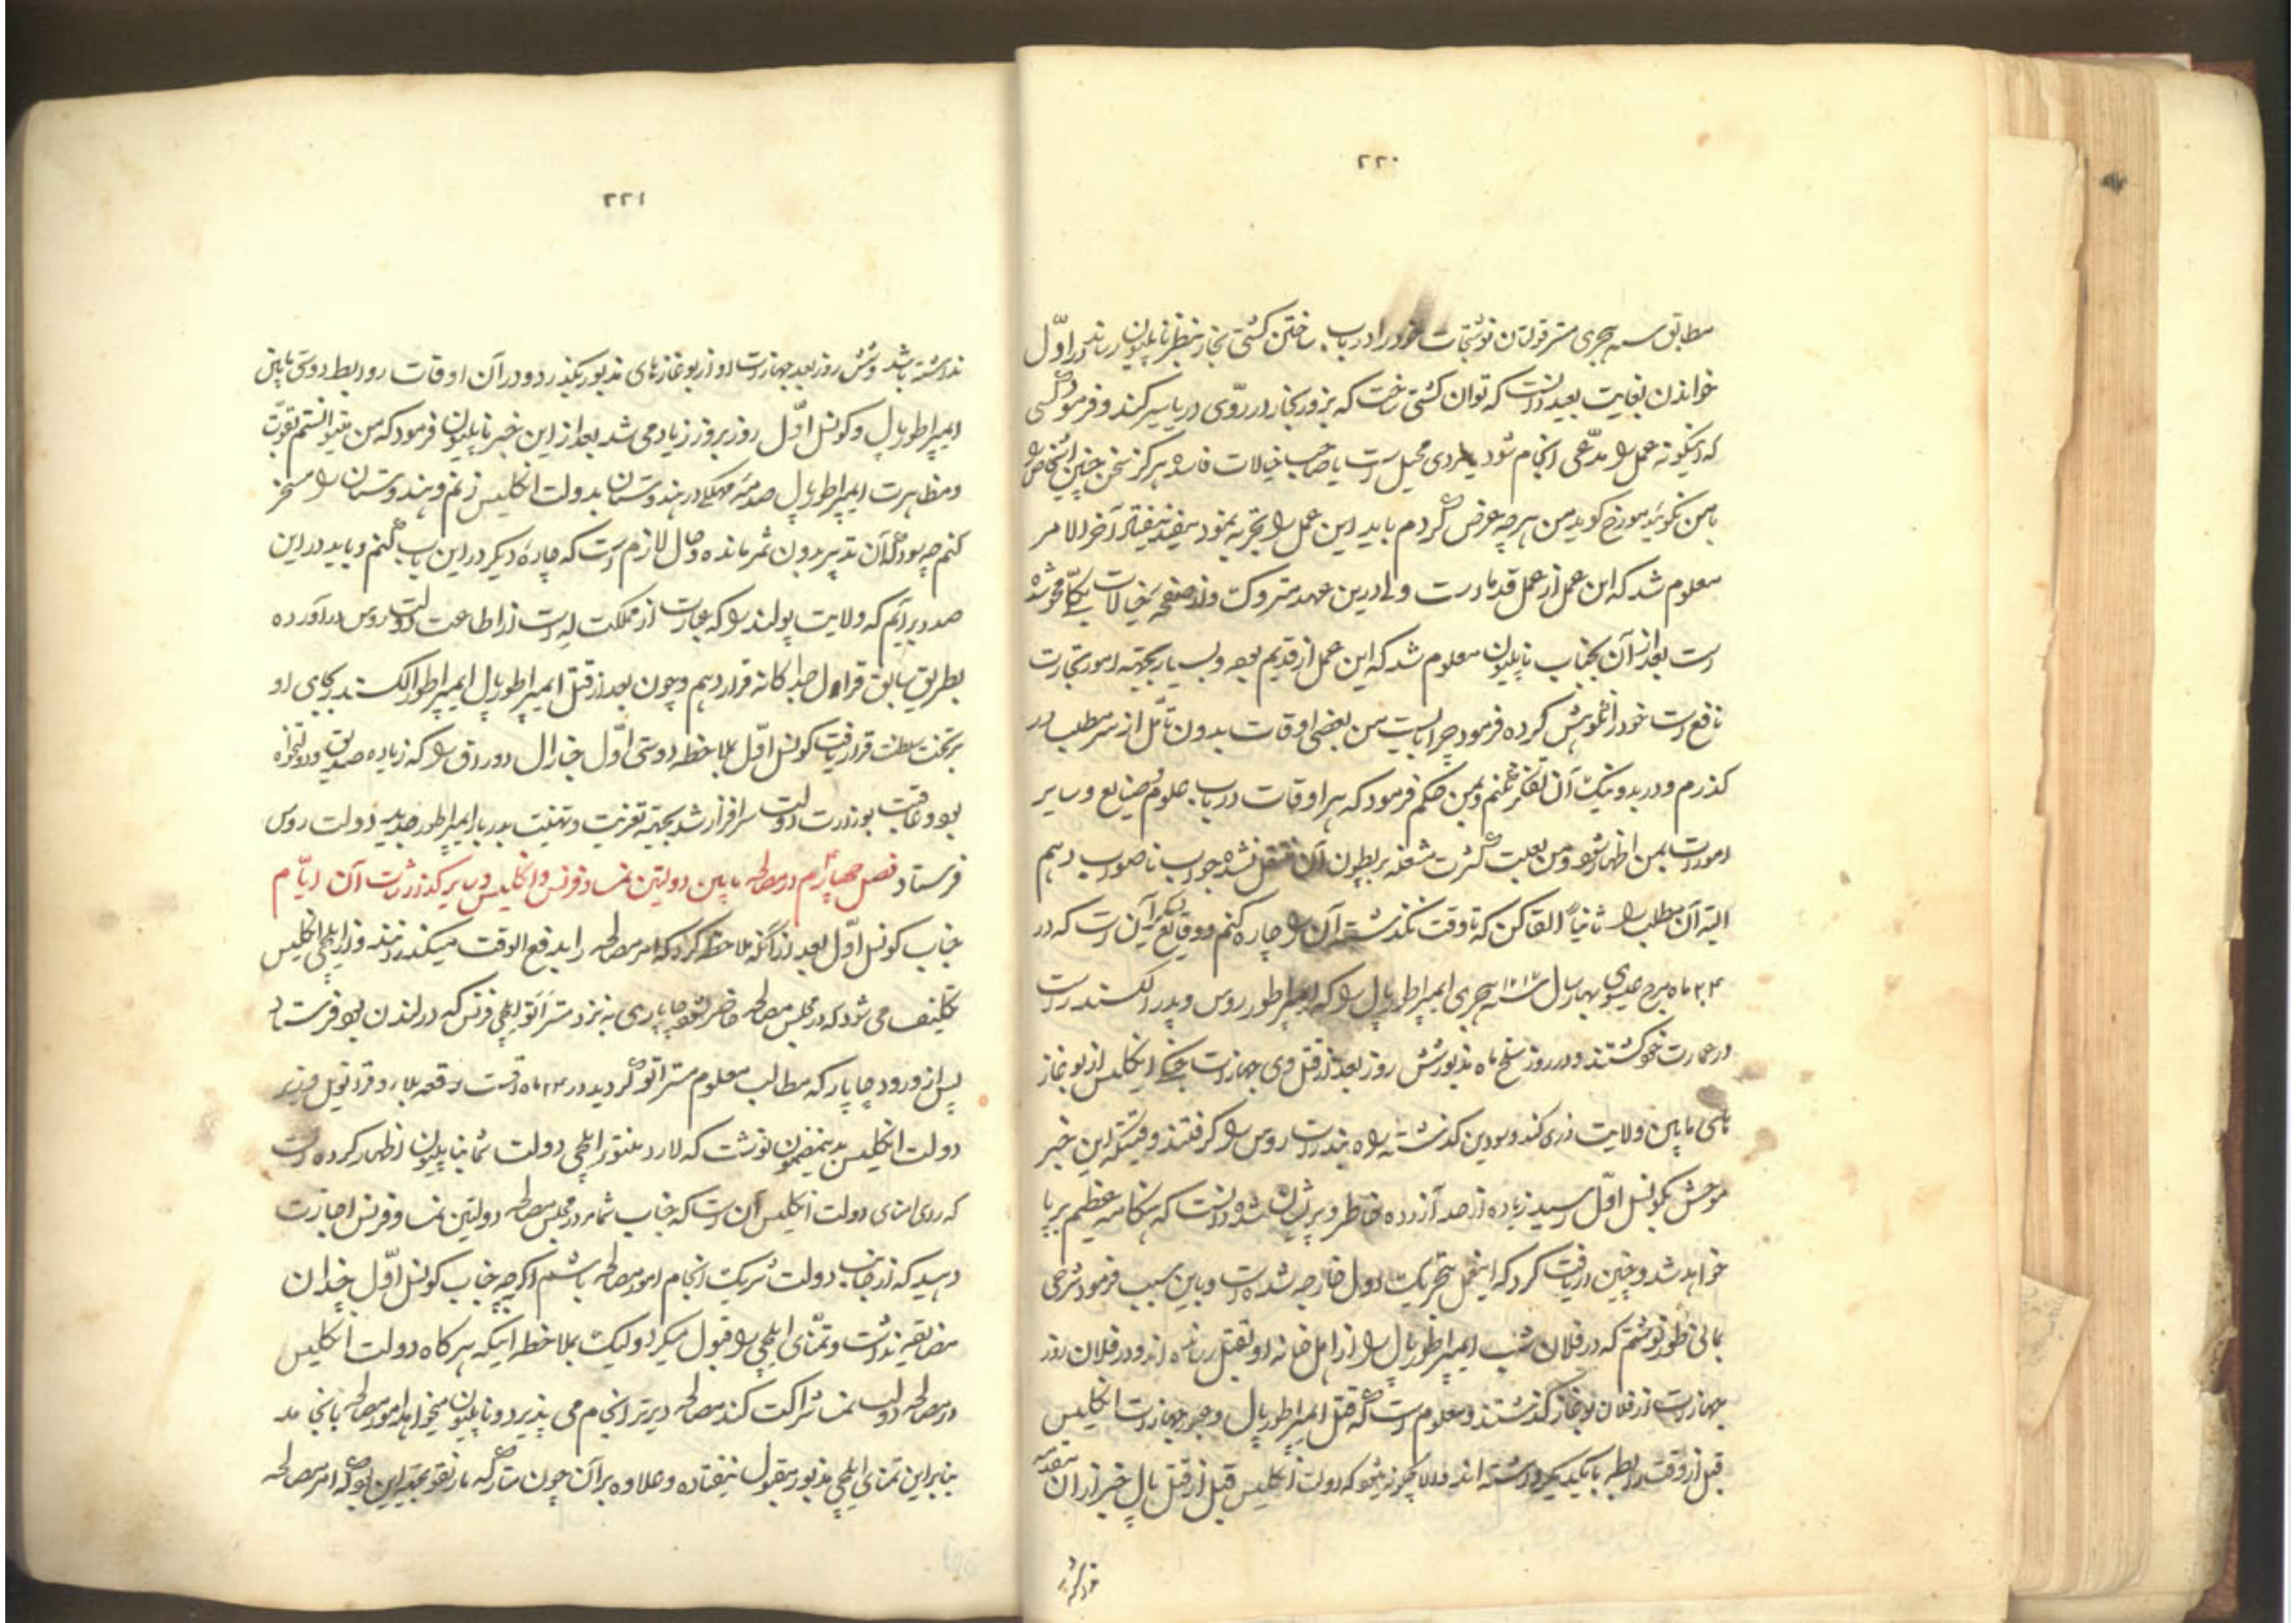 ۲۲۰
مطابق سنه هجری مستر فولتان نوشتجات خود را در باب ساختن کشتی بخار بنظر ناپلیون رساند در اوّل
خواندن بغایت بعید دانست که توان کشتی ساخت که بزور بخار در روی دریا سیر کند و فرمود کسی
که اینگونه عمل را مدّعی انجام شود یا مردی محیل است یا صاحب خیالات فاسده هرگز سخن چنین اشخاص را
با من نگوئید مورّخ گوید من هر چه عرض کردم باید این عمل را تجربه نمود مفید نیفتاد آخر الامر
معلوم شد که این عمل از عمل قدما است ولی درین عهد متروک و از صفحه خیالات بکلّی محو شده
است بعد از آن بجناب ناپلیون معلوم شد که این عمل از قدیم بوده و بسیار بجهة امور تجارت
نافع است خود را نکوهش کرده فرمود چرا بایست من بعضی اوقات بدون تأمّل از سر مطلب در
گذرم و در بد و نیک آن تفکر نکنم و بمن حکم فرمود که هر اوقات در باب علوم و صنایع و سایر
امورات بمن اظهار شود و من بعلت کثرت مشغله بر بطون آن منتقل نشده جواب ناصواب دهم
البته آن مطلب را ثانیاً القا کن که تا وقت نگذشته آن را چاره کنم و وقایع دیگر آن است که در
۲۴ ماه مرچ عیسوی بهار سال هجری ایمپراطور پال را که ایمپراطور روس و پدر الکسندر است
در عمارت خود کشتند و در روز سلخ ماه مذبور شش روز بعد از قتل وی جهازات جنگی انگلیس از بوغاز
های مابین ولایت زی‌کند و سودین گذشته راه بندرات روس را گرفتند وقتیکه این خبر
موحش بکونسل اوّل رسید زیاده از حد آزرده خاطر و پریشان شده دانست که هنگامه عظیم برپا
خواهد شد و چنین دریافت کرد که اینعمل بتحریک دول خارجه شده است و باین سبب فرمود شرحی
بمانی‌طور نوشتم که در فلان شب ایمپراطور پال را از اهل خانه او بقتل رسانده اند و در فلان روز
جهازات از فلان بوغاز گذشتند و معلوم است که قتل ایمپراطور پال و عبور جهازات انگلیس
قبل از وقت رابطه با یکدیگر داشته اند والا چگونه میشود که دولت انگلیس قبل از قتل پال خبر از آن مقدمه
نداشته
۲۲۱
نداشته باشد و شش روز بعد جهازات او از بوغازهای مذبور بگذرد و در آن اوقات روابط دوستی مابین
ایمپراطور پال و کونسل اوّل روز بروز زیاد می شد بعد از این خبر ناپلیون فرمود که من میتوانستم بقوّت
و مظاهرت ایمپراطور پال صدمه مهلکی در هندوستان بدولت انگلیس زنم و هندوستان را مسخر
کنم چه سود که آن تدبیر بدون ثمر مانده و حال لازم است که چاره دیگر در این باب کنم و باید در این
صدد برآیم که ولایت پولند را که عبارت از مملکت له است از اطاعت دولت روس درآورده
بطریق سابق قرال جداگانه قرار دهم و چون بعد از قتل ایمپراطور پال ایمپراطور الکسندر بجای او
بر تخت سلطنت قرار یافت کونسل اوّل بملاحظه دوستی اوّل جنارال دوراق را که زیاده صدیق و دولتخواه
بود و عاقبت بوزارت دولت سرافراز شد بجهة تعزیت و تهنیت بدربار ایمپراطور جدید دولت روس
فرستاد فصل چهارم در مصالحه مابین دولتین نمسا و فرنس و انگلیس و سایر گذارشات آن ایّام
جناب کونسل اوّل بعد از آنکه ملاحظه کرد که امر مصالحه را بدفع الوقت میگذرانند و از ایلچی انگلیس
تکلیف می شود که در مجلس مصالحه حاضر شود چاپاری به نزد مستر اتو ایلچی فرنس که در لندن بود فرستاد
پس از ورود چاپار که مطالب معلوم مستر اتو گردید در ۲۴ ماه اگست رقعه بلارد قرانویل وزیر
دولت انگلیس بدینمضمون نوشت که لارد منتو ایلچی دولت شما بناپلیون اظهار کرده است
که رای امنای دولت انگلیس آن است که جناب شما در مجلس مصالحه دولتین نمسا و فرنس اجازت
دهید که از جانب دولت شریک انجام امور مصالحه باشم اگر چه جناب کونسل اوّل چندان
مضایقه نداشت و تمنّای ایلچی را قبول میکرد ولیک بملاحظه اینکه هر گاه دولت انگلیس
در مصالحه دولت نمسا شراکت کند مصالحه دیرتر انجام می پذیرد و ناپلیون میخواهد امور مصالحه بانجامد
بنابر این تمنّای ایلچی مذبور مقبول نیفتاده و علاوه بر آن چون متارکه مارنقو بجهة این بود که امر مصالحه